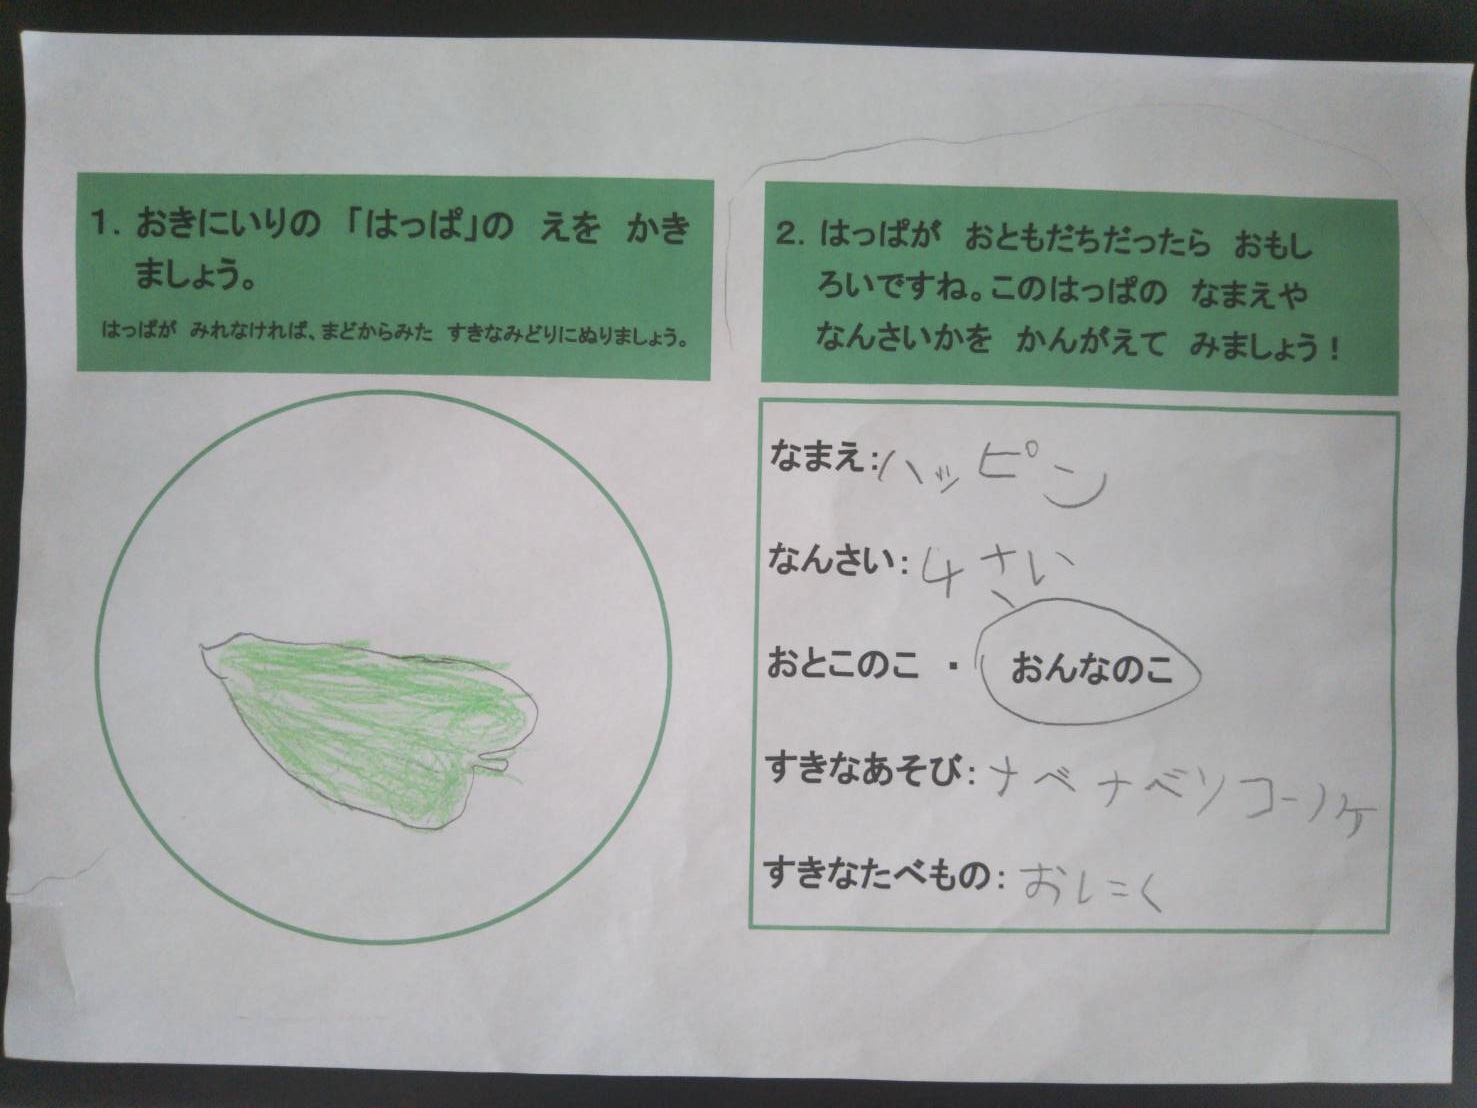 1. おきにいりの 「はっぱ」の えを かき
ましょう。
はっぱが みれなければ、まどからみた すきなみどりにぬりましょう。
2. はっぱが おともだちだったら おもし
ろいですね。このはっぱの なまえや
なんさいかを かんがえて みましょう!
なまえ:ハッピン
なんさい:4さい
おとこのこ ・ おんなのこ
すきなあそび:ナベナベソコーノケ
すきなたべもの:おにく